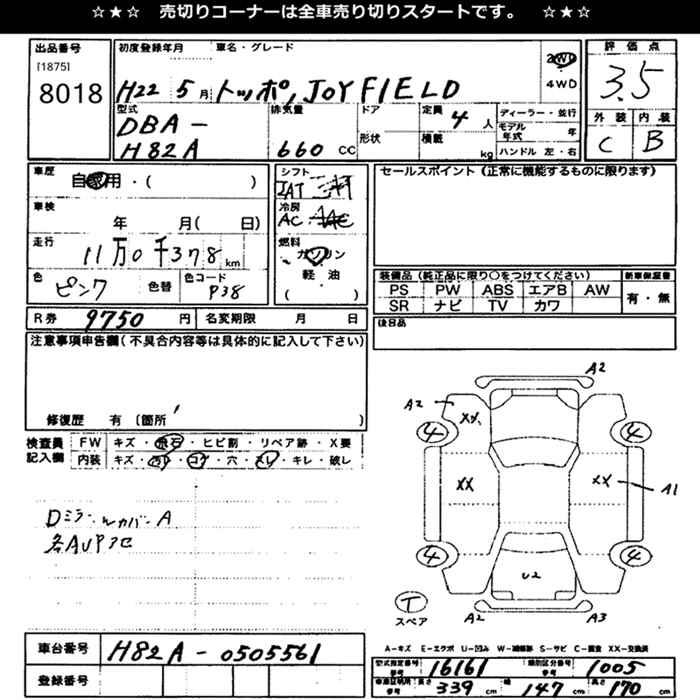 ☆★☆ 売切りコーナーは全車売り切りスタートです。 ☆★☆
出品番号
[1875]
8018
初度登録年月 車名・グレード
H22 5月 トッポ, JOYFIELD
2WD
4WD
評価点
3.5
外装 内装
C B
型式
DBA-
H82A
排気量
660 CC
ドア
形状
定員
4 人
積載
kg
ディーラー・並行
モデル年式 年
ハンドル 左・右
車歴
自家用・( )
車検
年 月( 日)
走行
11万0千378km
色
ピンク 色替
色コード
P38
シフト
IAT
冷房
AC
燃料
ガソリン
軽・油
( )
セールスポイント(正常に機能するものに限ります)
装備品(純正品に限り○をつけてください)
PS PW ABS エアB AW
SR ナビ TV カワ
新車保証書
有・無
後日品
R券 9750 円 名変期限 月 日
注意事項申告欄(不具合内容等は具体的に記入して下さい)
修復歴 有 (箇所
検査員
記入欄
FW キズ・飛石・ヒビ割・リペア跡・X要
内装 キズ・汚レ・コゲ・穴・スレ・キレ・破レ
DミラーカバーA
各AUPアセ
A2
A2
XX
4 4
XX XX A1
4 4
U2
T
スペア
A2 A3
A-キズ E-エクボ U-凹み W-補修跡 S-サビ C-腐食 XX-交換済
車台番号 H82A-0505561
登録番号
型式指定番号
参考
16161
類別区分番号
参考
1005
車車証明用
参考
長さ 339 cm 幅 147 cm 高さ 170 cm